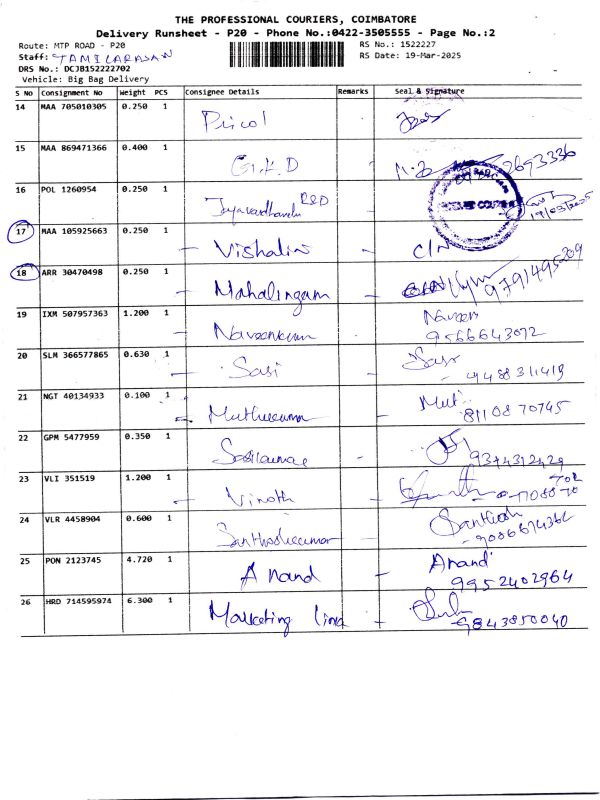 THE PROFESSIONAL COURIERS, COIMBATORE
Delivery Runsheet - P20 - Phone No.:0422-3505555 - Page No.:2
Route: MTP ROAD - P20 RS No.: 1522227
Staff: TAMILARASAN RS Date: 19-Mar-2025
DRS No.: DCJB152222702
Vehicle: Big Bag Delivery
S No Consignment No Weight PCS Consignee Details Remarks Seal & Signature
14 MAA 705010305 0.250 1 Pricol
15 MAA 869471366 0.400 1 G.K.D
16 POL 1260954 0.250 1 R&D
17 MAA 105925663 0.250 1 Vishalin C/N
18 ARR 30470498 0.250 1 Mahalingam 9791495309
19 IXM 507957363 1.200 1 Naveenkum Naveen
9566643072
20 SLM 366577865 0.630 1 Sasi Sasi
9488311419
21 NGT 40134933 0.100 1 Muthukumar Mut
8110870745
22 GPM 5477959 0.350 1
23 VLI 351519 1.200 1 Vinoth
24 VLR 4458904 0.600 1 Santhoshkumar Santhosh
25 PON 2123745 4.720 1 Anand Anand
9952402964
26 HRD 714595974 6.300 1 Marketing link
9843850040